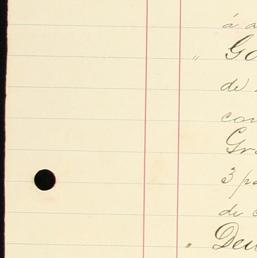 á a
" Go
de
con
Gra
3 p
de
" Deu